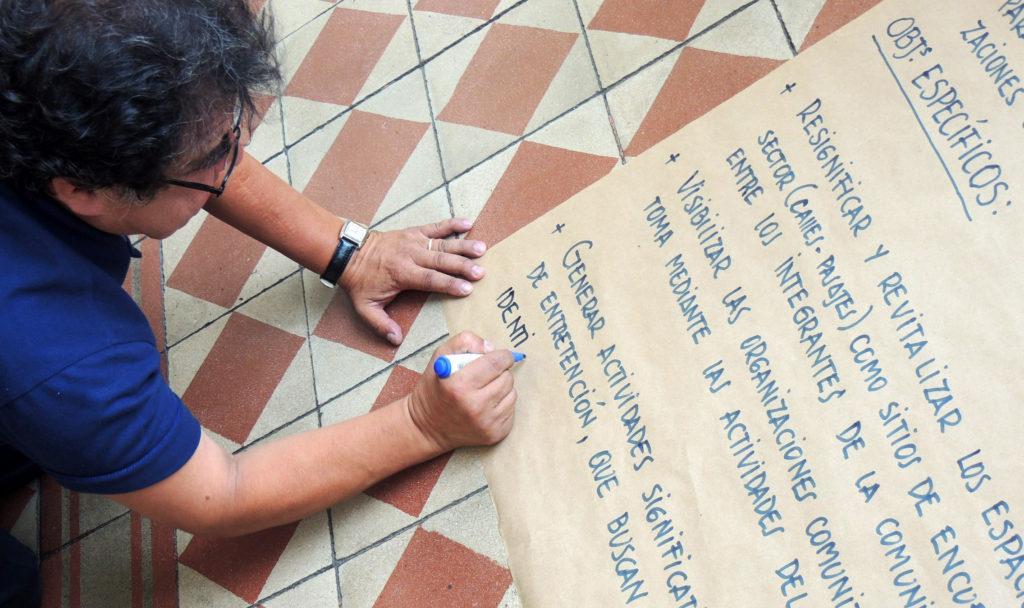 ZACIONES
OBJs. ESPECÍFICOS:
+ RESIGNIFICAR Y REVITALIZAR LOS ESPAC
SECTOR (CALLES - PASAJES) COMO SITIOS DE ENCU
ENTRE LOS INTEGRANTES DE LA COMUNI
+ VISIBILIZAR LAS ORGANIZACIONES COMUNIT
TOMA MEDIANTE LAS ACTIVIDADES DEL
+ GENERAR ACTIVIDADES SIGNIFICATI
DE ENTRETENCIÓN, QUE BUSCAN
IDENTI